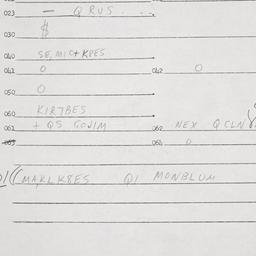 023 — QRUS . . .
030 $
040 SE, MIC+KRES
041 0 042 0
050 0
060 KIRTBES
061 + QS GOJIM 062 NEX QCLN
063 064 0
MARLKBES QI MONBLUM